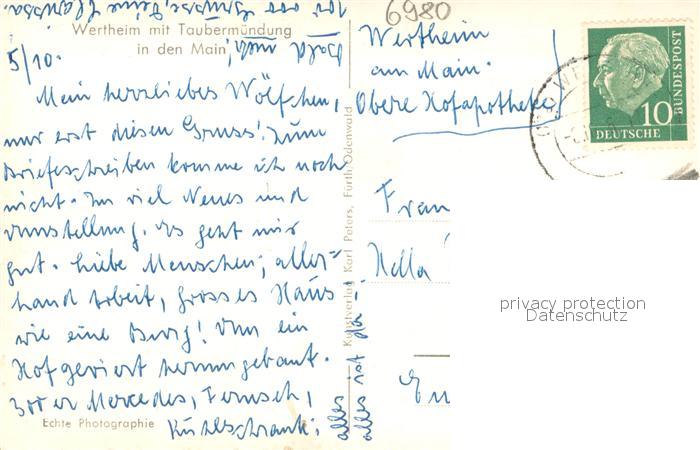 6980
Wertheim mit Taubermündung
in den Main
5/10.
Mein herzliebes Wölfchen,
nur erst diesen Gruss! Zum
Briefschreiben komme ich noch
nicht. Zu viel Neues und
Umstellung. Es geht mir
gut. Liebe Menschen, aller-
hand Arbeit, grosses Haus
wie eine Burg! Um ein
Hofgeviert herumgebaut.
300er Mercedes, Fernseh,
Kühlschrank,
alles
alles ist da!
100 000 Grüsse, Deine
bald mehr,
Echte Photographie
Kunstverlag Karl Peters, Fürth/Odenwald
Wertheim
am Main.
Obere Hofapotheke!
Frau
Hella
DEUTSCHE
BUNDESPOST
10
privacy protection
Datenschutz